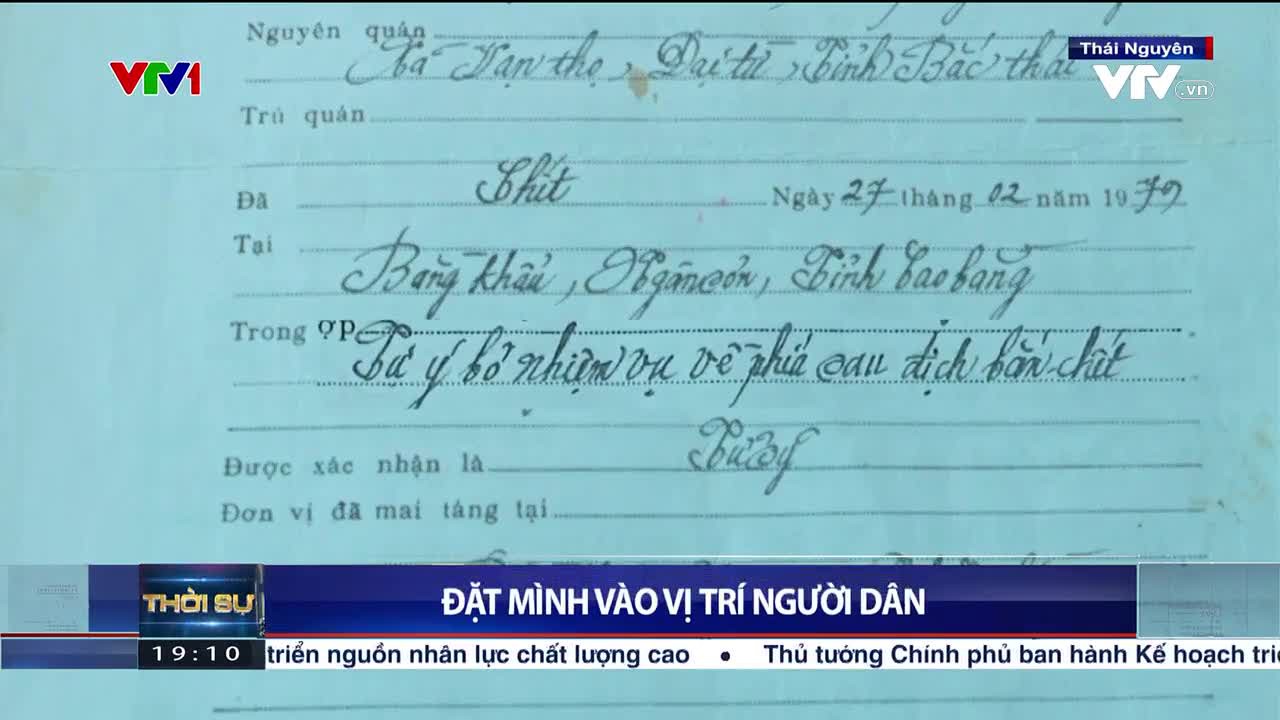 Nguyên quán
Xã Vạn thọ, Đại từ, Tỉnh Bắc thái
Thái Nguyên
VTV1
VTV.vn
Trú quán
Đã Chết Ngày 27 tháng 02 năm 1979
Tại
Bằng khẩu, Ngân sơn, Tỉnh Cao bằng
Trong ợp
Tự ý bỏ nhiệm vụ về phía sau địch bắn chết
Được xác nhận là Tử sỹ
Đơn vị đã mai táng tại
THỜI SỰ
ĐẶT MÌNH VÀO VỊ TRÍ NGƯỜI DÂN
19:10 triển nguồn nhân lực chất lượng cao • Thủ tướng Chính phủ ban hành Kế hoạch triể